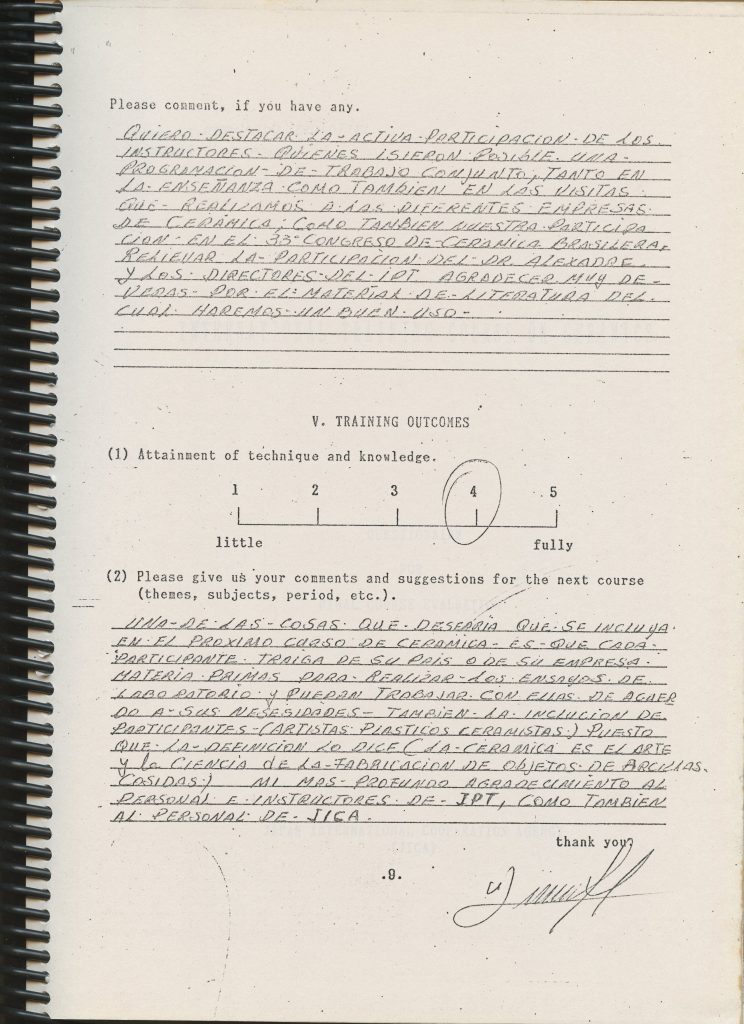 Please comment, if you have any.
QUIERO DESTACAR LA ACTIVA PARTICIPACION DE LOS
INSTRUCTORES QUIENES ISIERON POSIBLE UNA
PROGRAMACION DE TRABAJO CONJUNTO, TANTO EN
LA ENSEÑANZA COMO TAMBIEN EN LAS VISITAS
QUE REALIZAMOS A LAS DIFERENTES EMPRESAS
DE CERÁMICA; COMO TAMBIEN NUESTRA PARTICIPA
CION EN EL 33º CONGRESO DE CERAMICA BRASILERA,
RELIEVAR LA PARTICIPACION DEL DR ALEXADRE
Y LOS DIRECTORES DEL IPT AGRADECER MUY DE
VERAS POR EL MATERIAL DE LITERATURA DEL
CUAL HAREMOS UN BUEN USO-
V. TRAINING OUTCOMES
(1) Attainment of technique and knowledge.
1 2 3 4 5
little fully
(2) Please give us your comments and suggestions for the next course
(themes, subjects, period, etc.).
UNA DE LAS COSAS QUE DESEARIA QUE SE INCLUYA
EN EL PROXIMO CURSO DE CERAMICA ES QUE CADA
PARTICIPANTE TRAIGA DE SU PAÍS O DE SU EMPRESA
MATERIA PRIMAS PARA REALIZAR LOS ENSAYOS DE
LABORATORIO Y PUEDAN TRABAJAR CON ELLAS DE ACUER
DO A SUS NESESIDADES - TAMBIEN LA INCLUCION DE
PARTICIPANTES (ARTISTAS PLASTICOS CERAMISTAS) PUESTO
QUE LA DEFINICION LO DICE (LA CERAMICA ES EL ARTE
y la CIENCIA de LA FABRICACION DE OBJETOS DE ARCILLAS
COSIDAS) MI MAS PROFUNDO AGRADECIMIENTO AL
PERSONAL E INSTRUCTORES DE IPT, COMO TAMBIEN
AL PERSONAL DE JICA.
thank you?
.9.